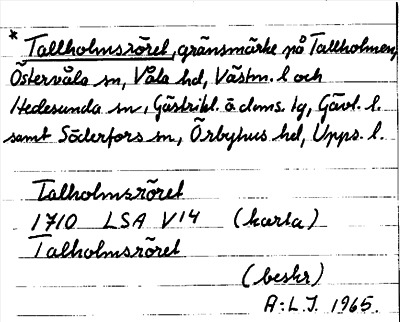 * Tallholmsröret, gränsmärke på Tallholmen,
Östervåla sn, Våla hd, Västm. l och
Hedesunda sn, Gästrikl. ö doms. lg, Gävl. l.
samt Söderfors sn, Örbyhus hd, Upps. l.
Talholmsröret
1710 LSA V14 (karta)
Talholmsröret
(beskr)
A:L.J. 1965.